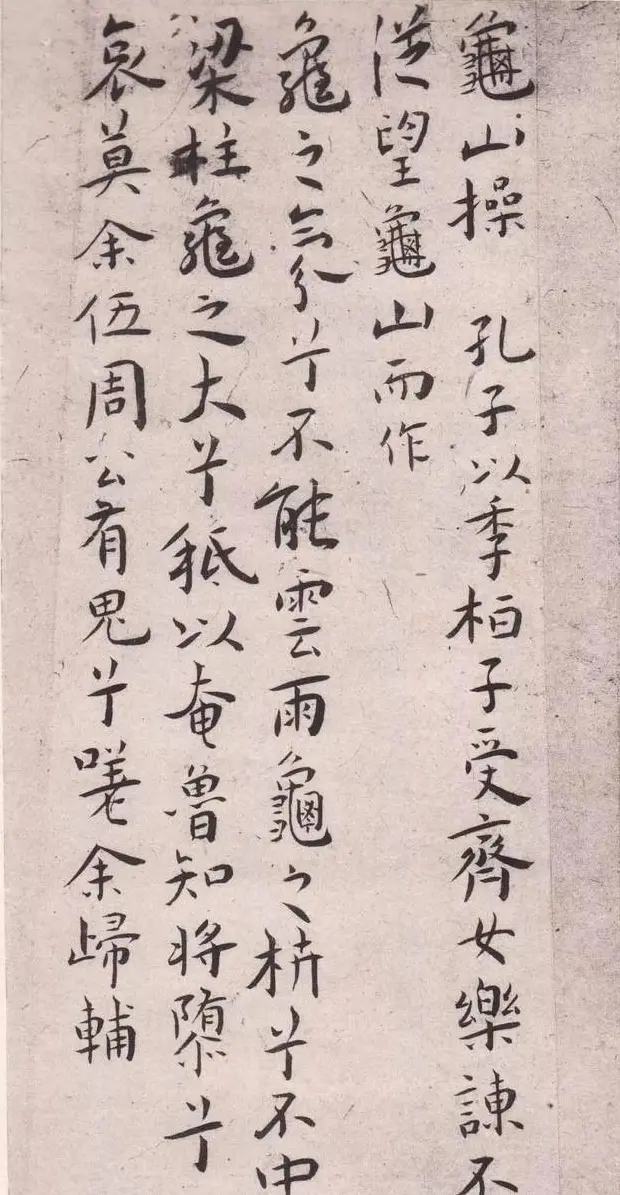 龜山操 孔子以季柏子受齊女樂諫不
従望龜山而作
龜之氛兮不能雲雨龜之枿兮不中
梁柱龜之大兮秪以奄魯知将隳兮
哀莫余伍周公有鬼兮嗟余歸輔